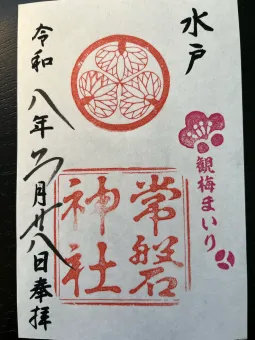 水戸
観梅まいり
常磐
神社
令和八年月廿八日奉拝